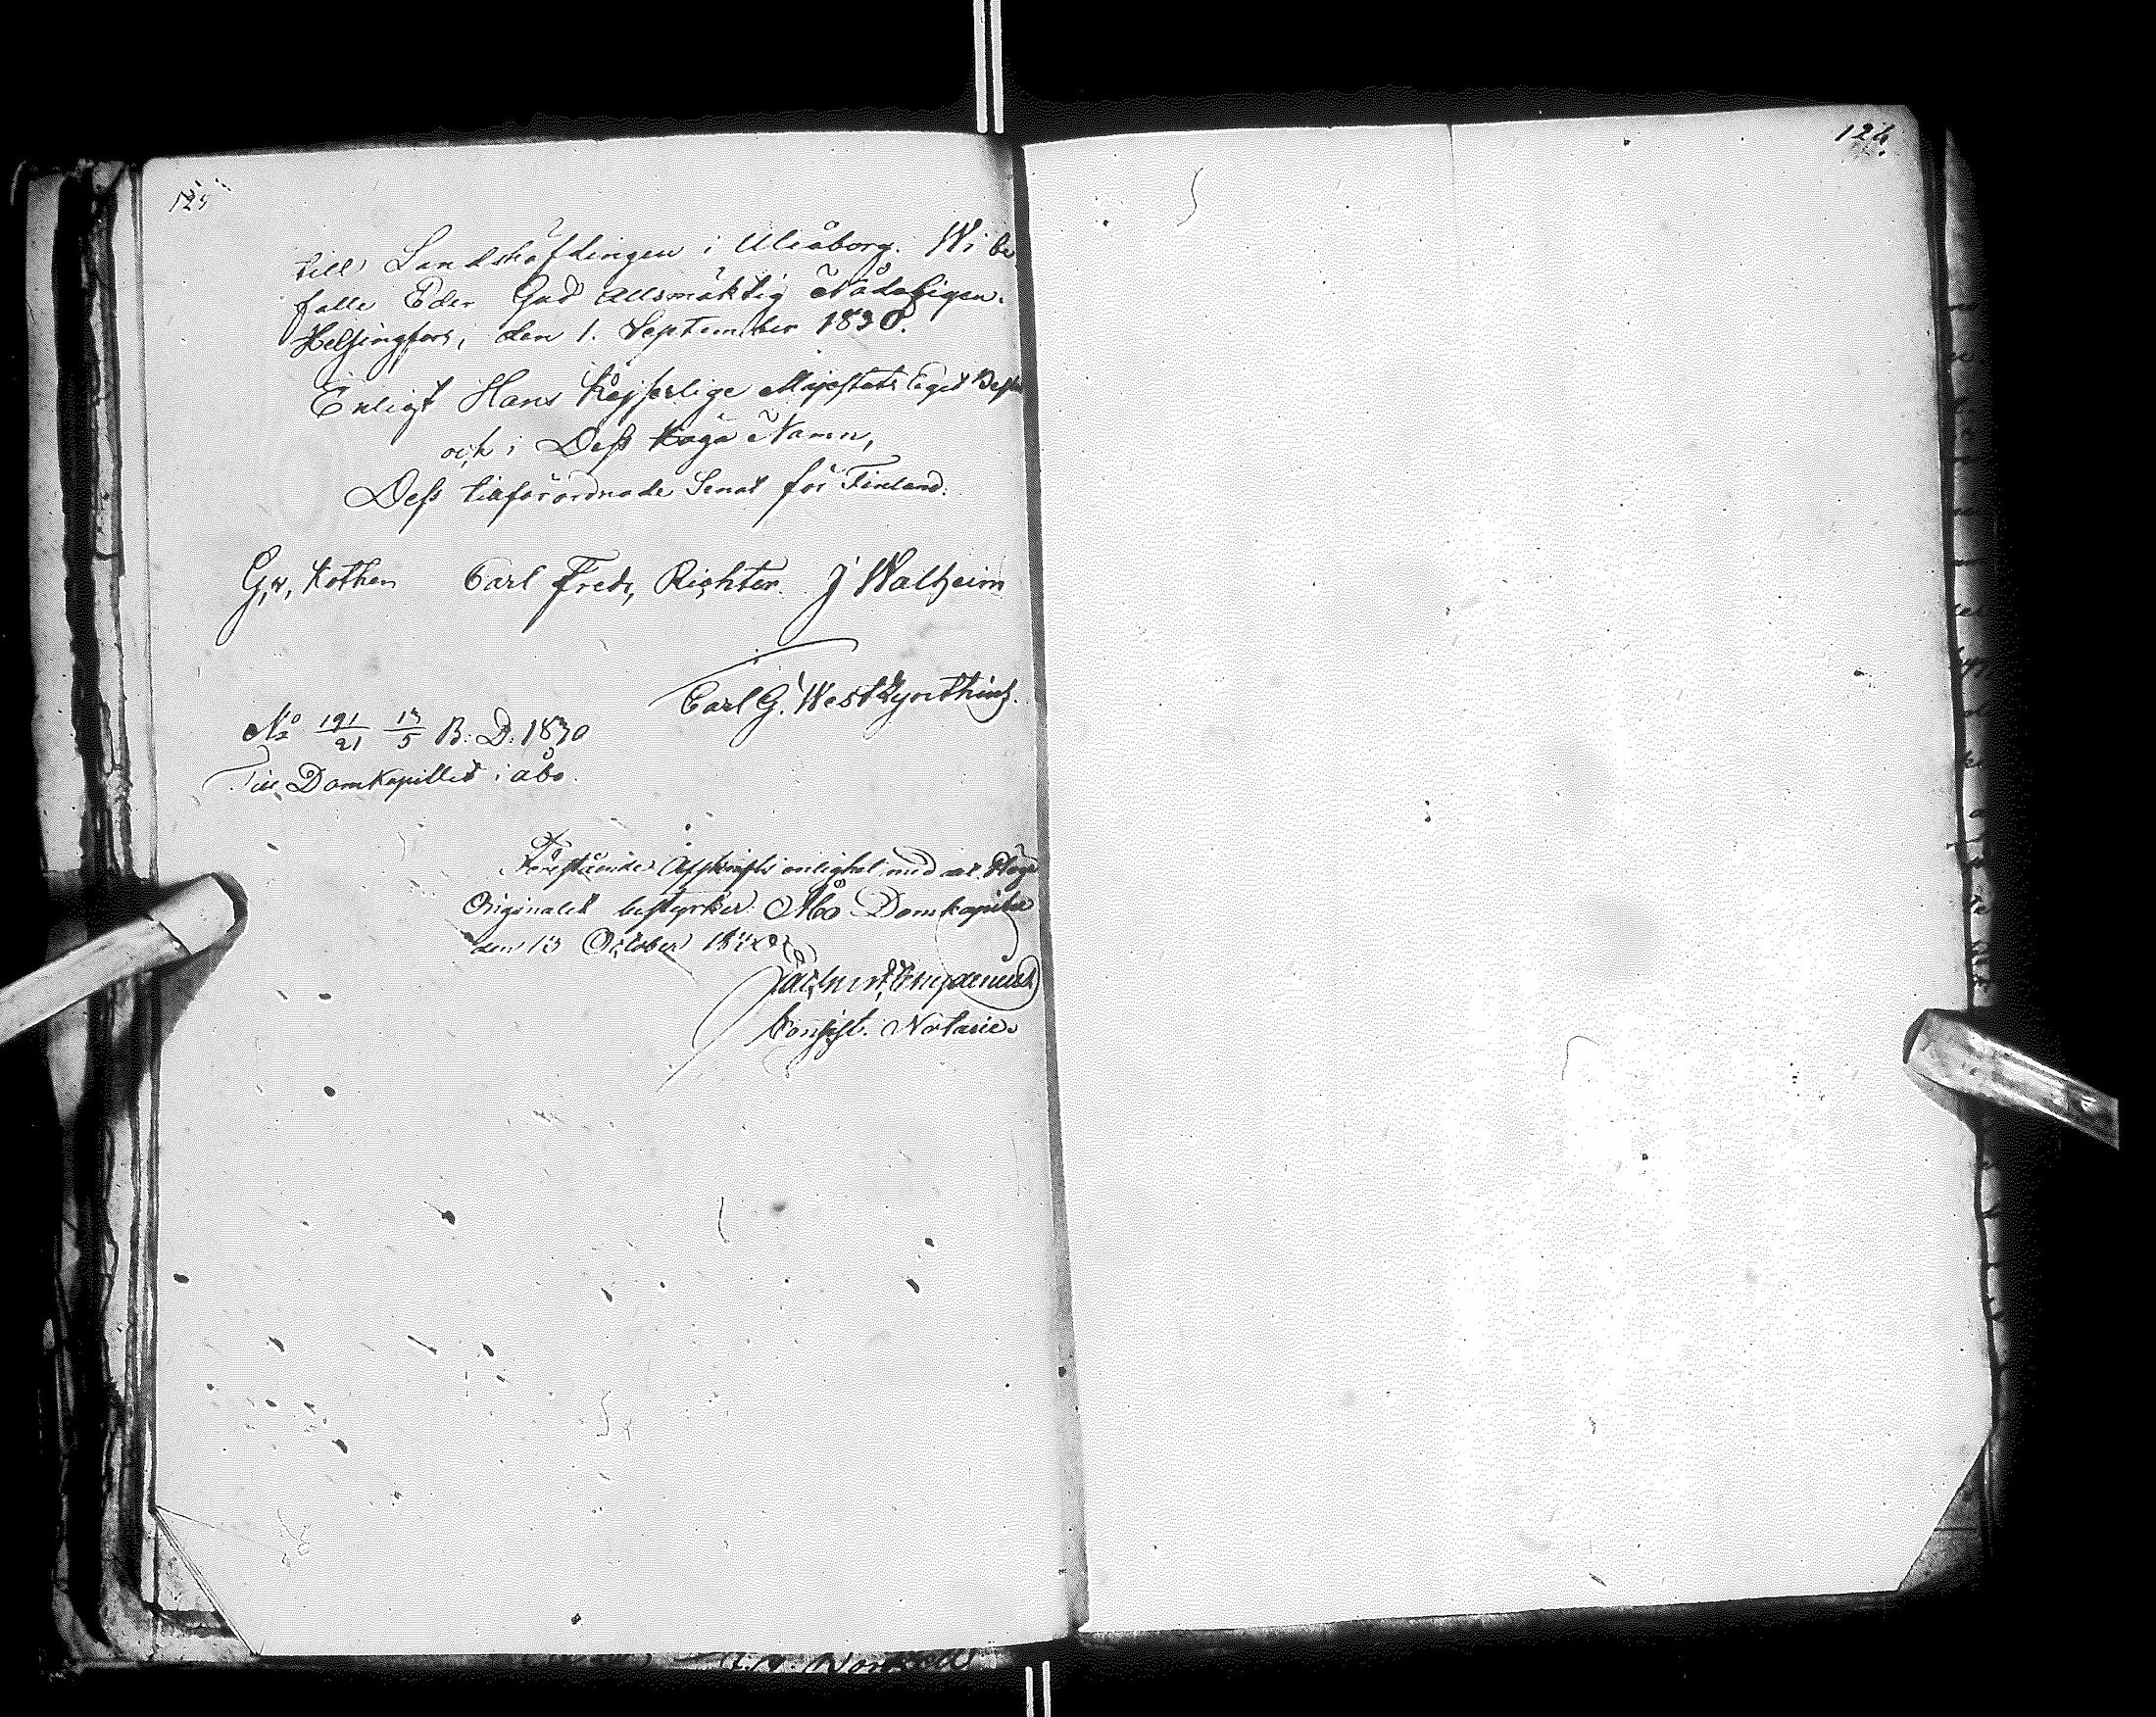 125
till Landshöfdingen i Uleåborg. Wi be
falle Eder Gud Allsmäktig Nådeligen.
Helsingfors, den 1. September 1830.
Enligt Hans Kejserlige Majestäts Eget Beslut
och i Dess Höga Namn,
Dess tillförordnade Senat för Finland.
G, v, Kothen Carl Fredr, Richter. J Walheim
Carl G.
No 191/21 13/5 B. D. 1830
Till Domkapitlet i Åbo.
Förestående Afskrifts enlighet med det Höga
Originalet bestyrker Åbo Domkapitel
den 13 October
Consist. Notarie.
126.